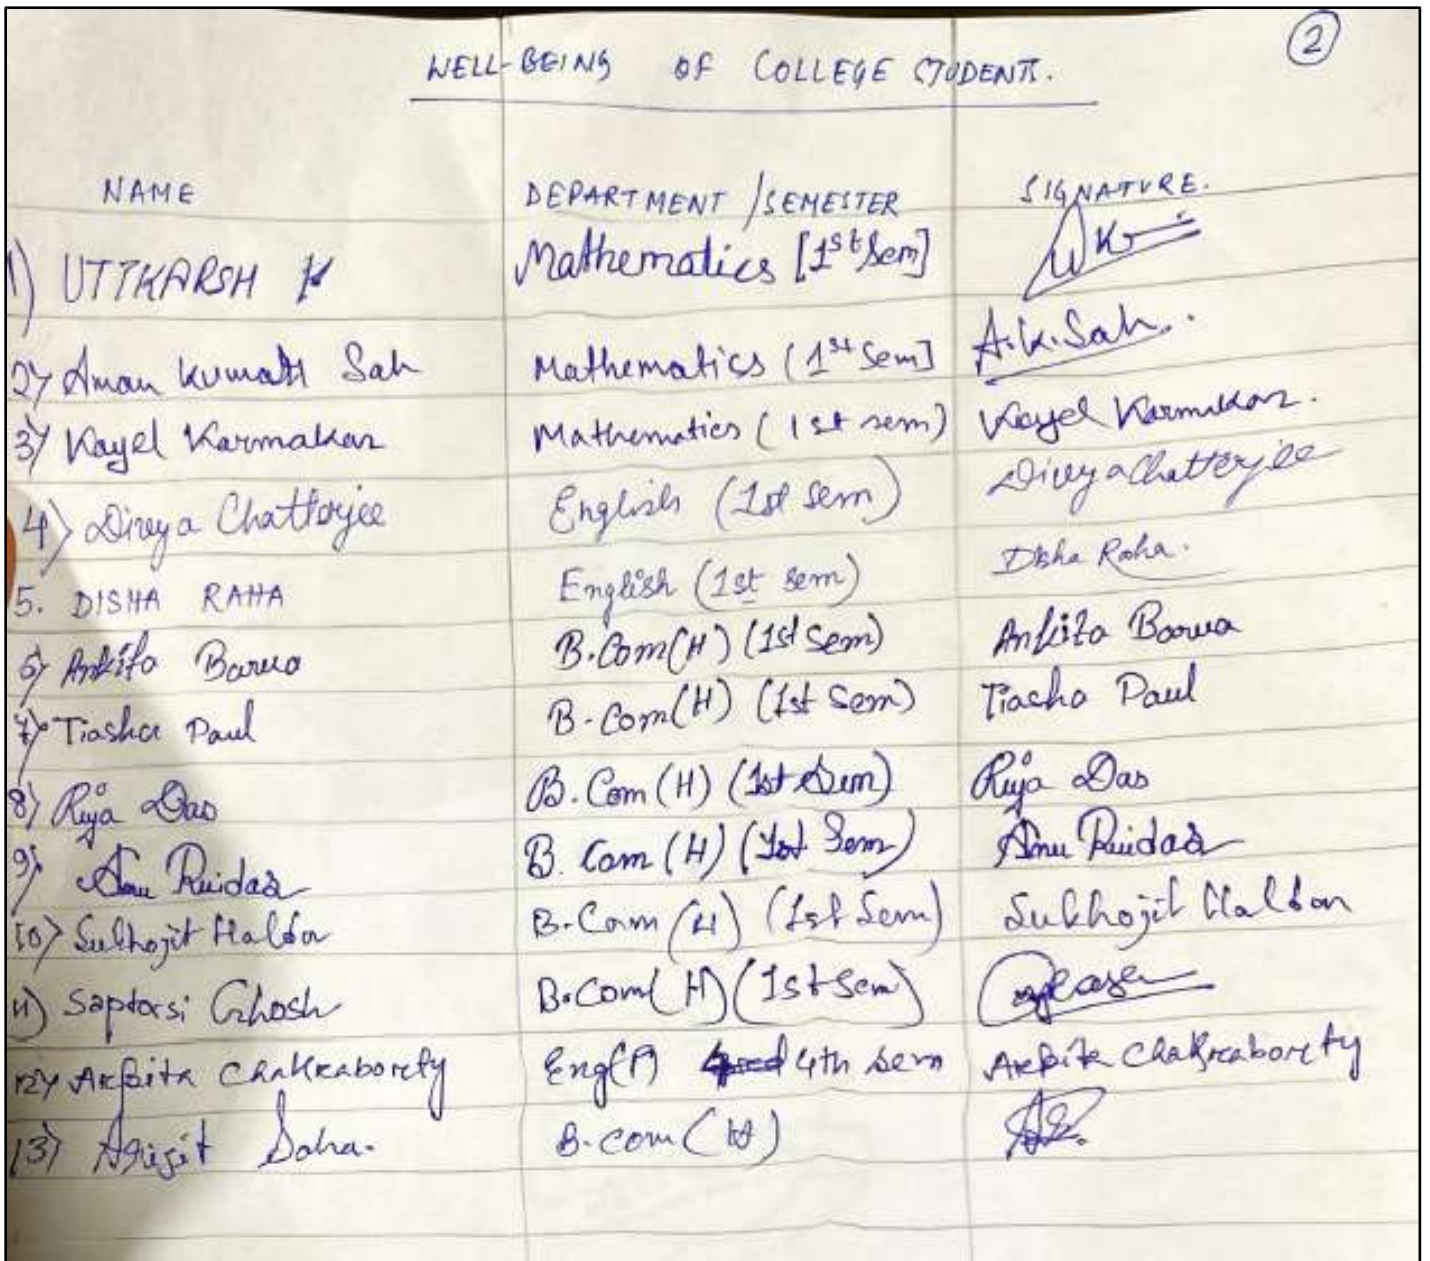 2
WELL-BEING OF COLLEGE STUDENTS.
NAME DEPARTMENT /SEMESTER SIGNATURE.
1) UTTKARSH K Mathematics [1st Sem]
2) Aman Kumar Sah Mathematics (1st Sem] A.K.Sah..
3) Kayel Karmakar Mathematics (1st sem) Kayel Karmakar.
4) Divya Chatterjee English (1st sem) Divya Chatterjee
5. DISHA RAHA English (1st sem) Disha Raha.
6) Ankita Barua B.Com(H) (1st Sem) Ankita Barua
7) Tiasha Paul B.Com(H) (1st Sem) Tiasha Paul
8) Riya Das B.Com (H) (1st Sem) Riya Das
9) Anu Ruidas B. Com (H) (1st Sem) Anu Ruidas
10) Sukhojit Haldar B.Com (H) (1st Sem) Sukhojit Haldar
11) Saptarsi Ghosh B.Com(H) (1st Sem)
12) Arpita Chakraborty Eng(P) 4th sem Arpita Chakraborty
13) Arijit Saha. B.com (H)